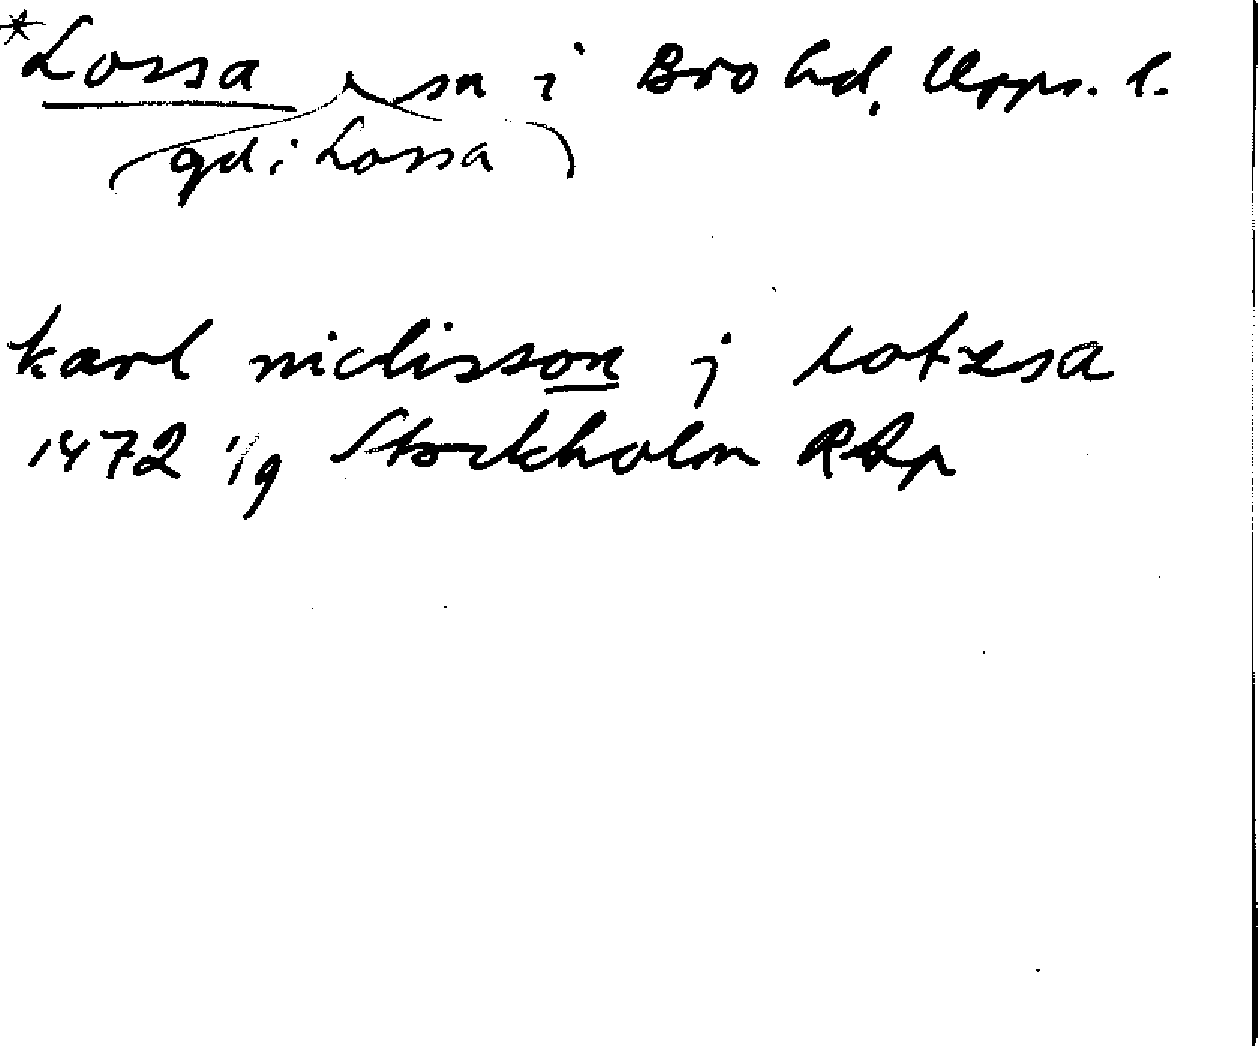 *Lossa sn i Bro hd, Upps. l.
gd i Lossa
karl niclisson j lotzsa
1472 1/9 Stockholm RAp